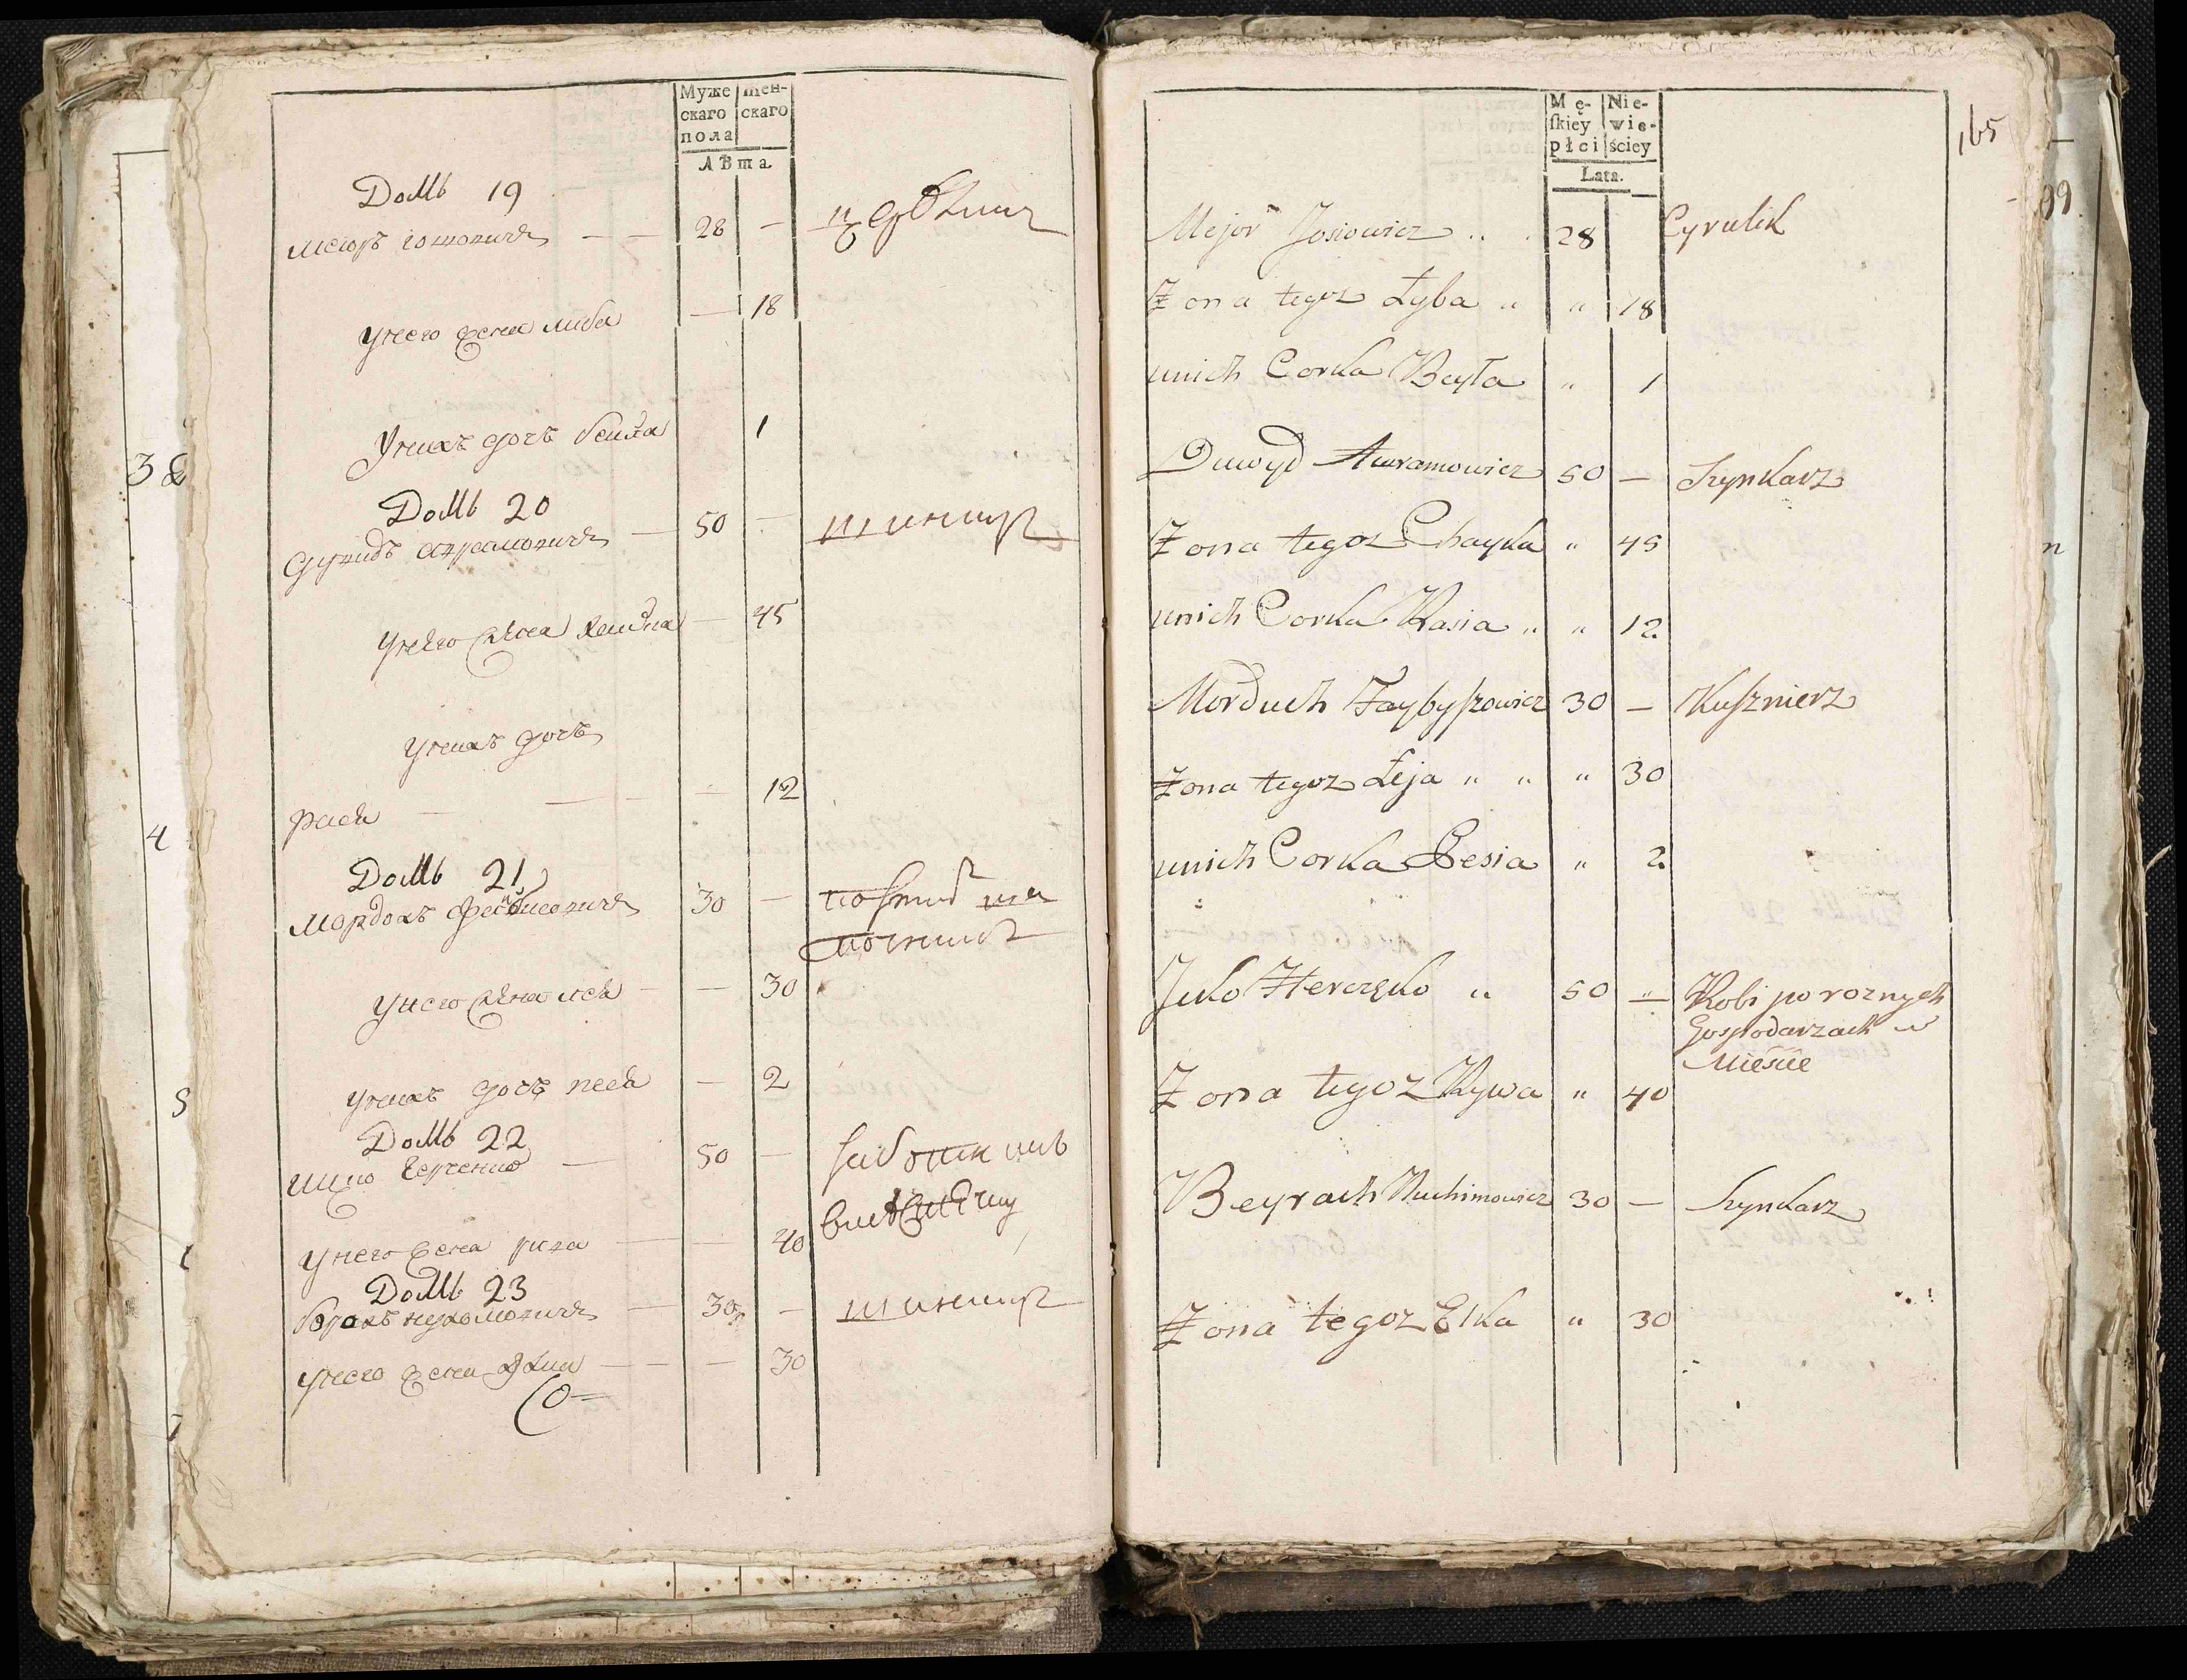 Муже
скаго
пола
Жен-
скаго
лѣта
Домъ 19
меюръ iошовичъ — — 28 —
унего жена либа — 18
унихъ дочь беила 1
Домъ 20
дувидъ аврамовичъ — 50 — шинкарь
унего жена хаика — 45
унихъ дочь
рася — — — — 12
Домъ 21
мордохъ фаибисовичъ 30 —
унего жена лея — — 30
унихъ дочь песя — 2
Домъ 22
ицко герченко — 50 —
унего жена рива — — 40
Домъ 23
борохъ нухимовичъ — 30 — шинкарь
унего жена элка — — — 30
Mę-
ſkiey
płci
Nie-
wie-
ściey
Lata.
165
Mejor Josiowicz .. . 28 Cyrulik
Żona tegoz Łyba " " 18
unich Corka Beyła " 1
Duwyd Awramowicz 50 — Szynkarz
Żona tegoz Chayka " 45
unich Corka Rasia " " 12
Morduch Faybyszowicz 30 — Kusznierz
Żona tegoz Łeja " " " 30
unich Corka Pesia " 2
Icko Herczęko " 50 — Robi po roznych
Gospodarzach w
Mieście
Żona tegoz Rywa " 40
Beyrach Nuchimowicz 30 — Szynkarz
Żona tegoz Elka " 30